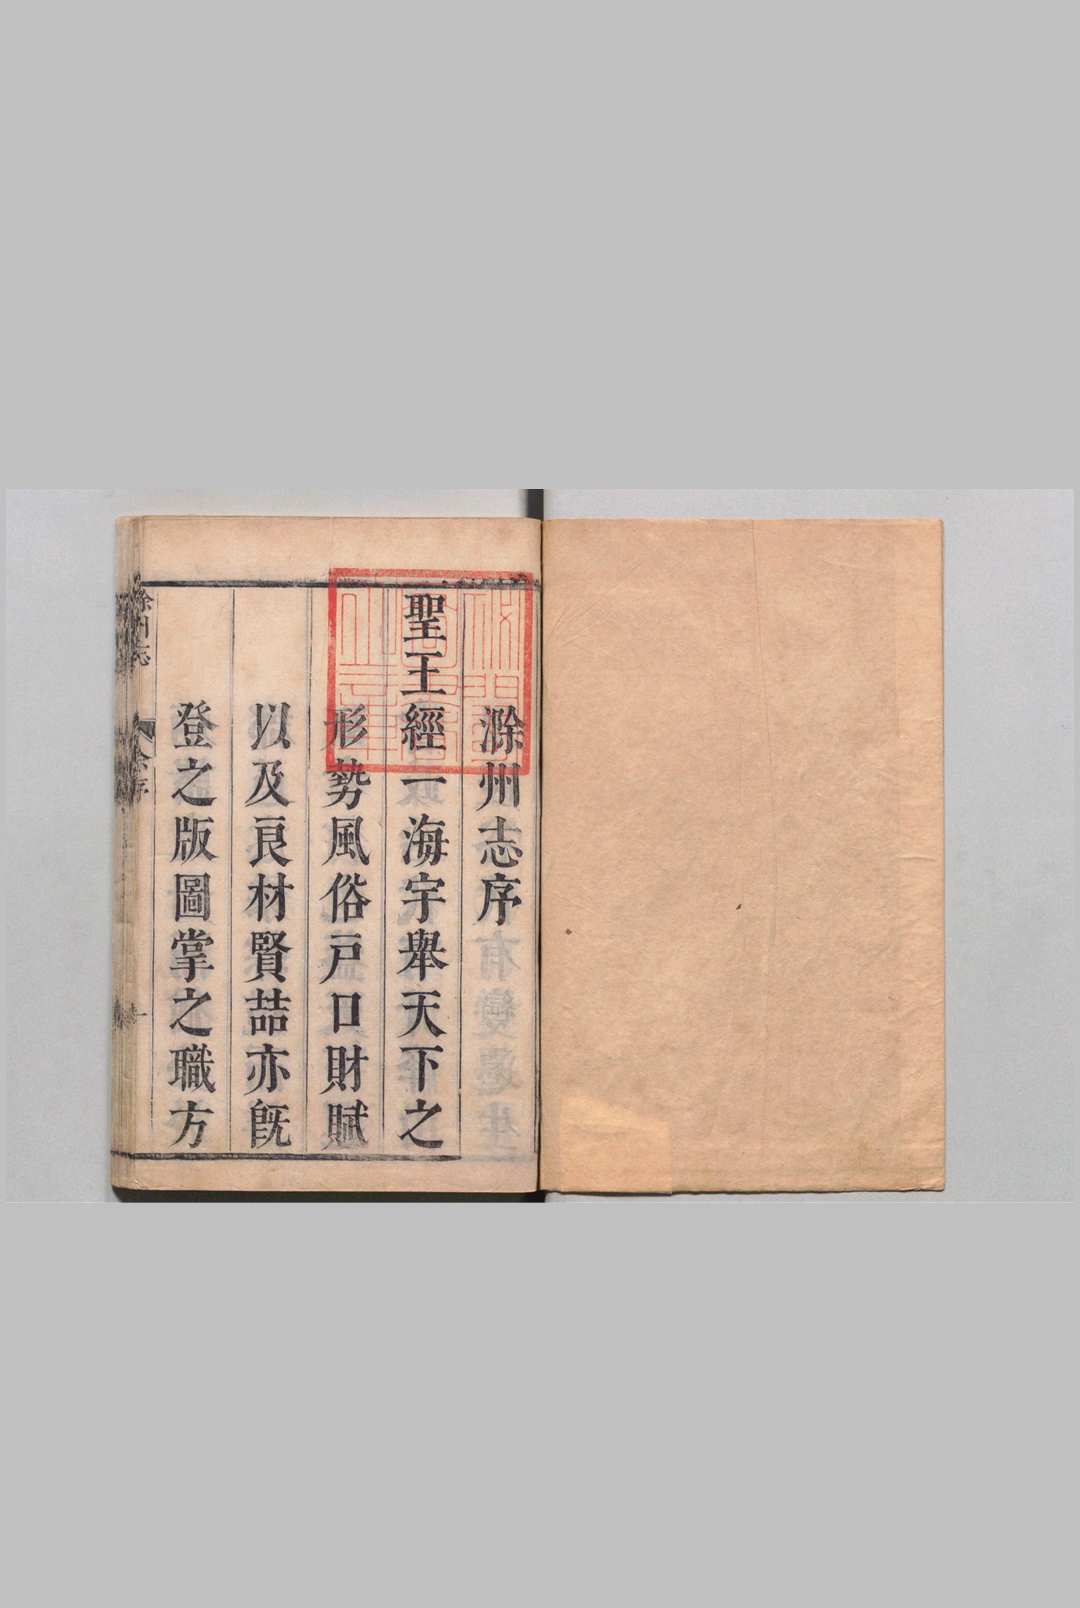 滁州志序
聖王經一海宇舉天下之
形勢風俗戸口財賦
以及良材賢喆亦旣
登之版圖掌之職方
滁州志